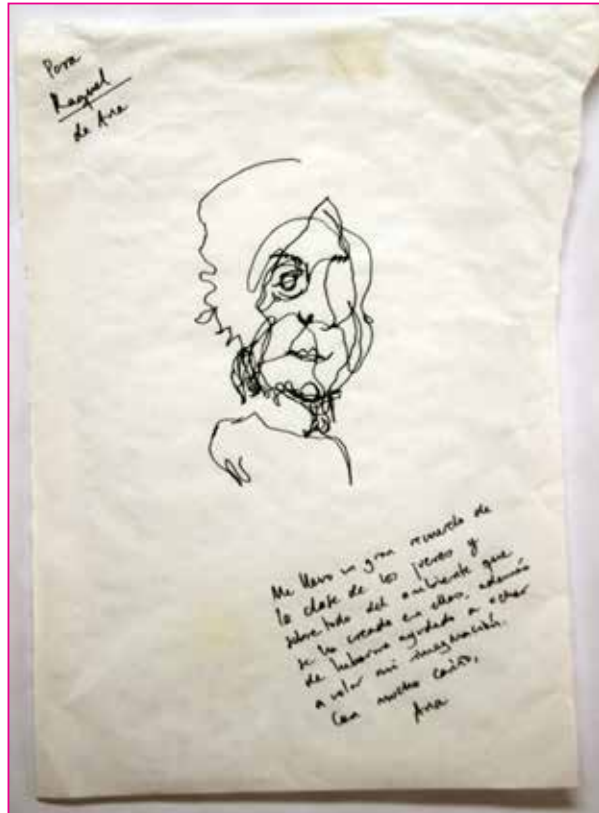 Para
Raquel
de Ana
Me llevo un gran recuerdo de
la clase de los jueves y
sobre todo del ambiente que
se ha creado en ellos, además
de haberme ayudado a echar
a volar mi imaginación.
Con mucho cariño,
Ana